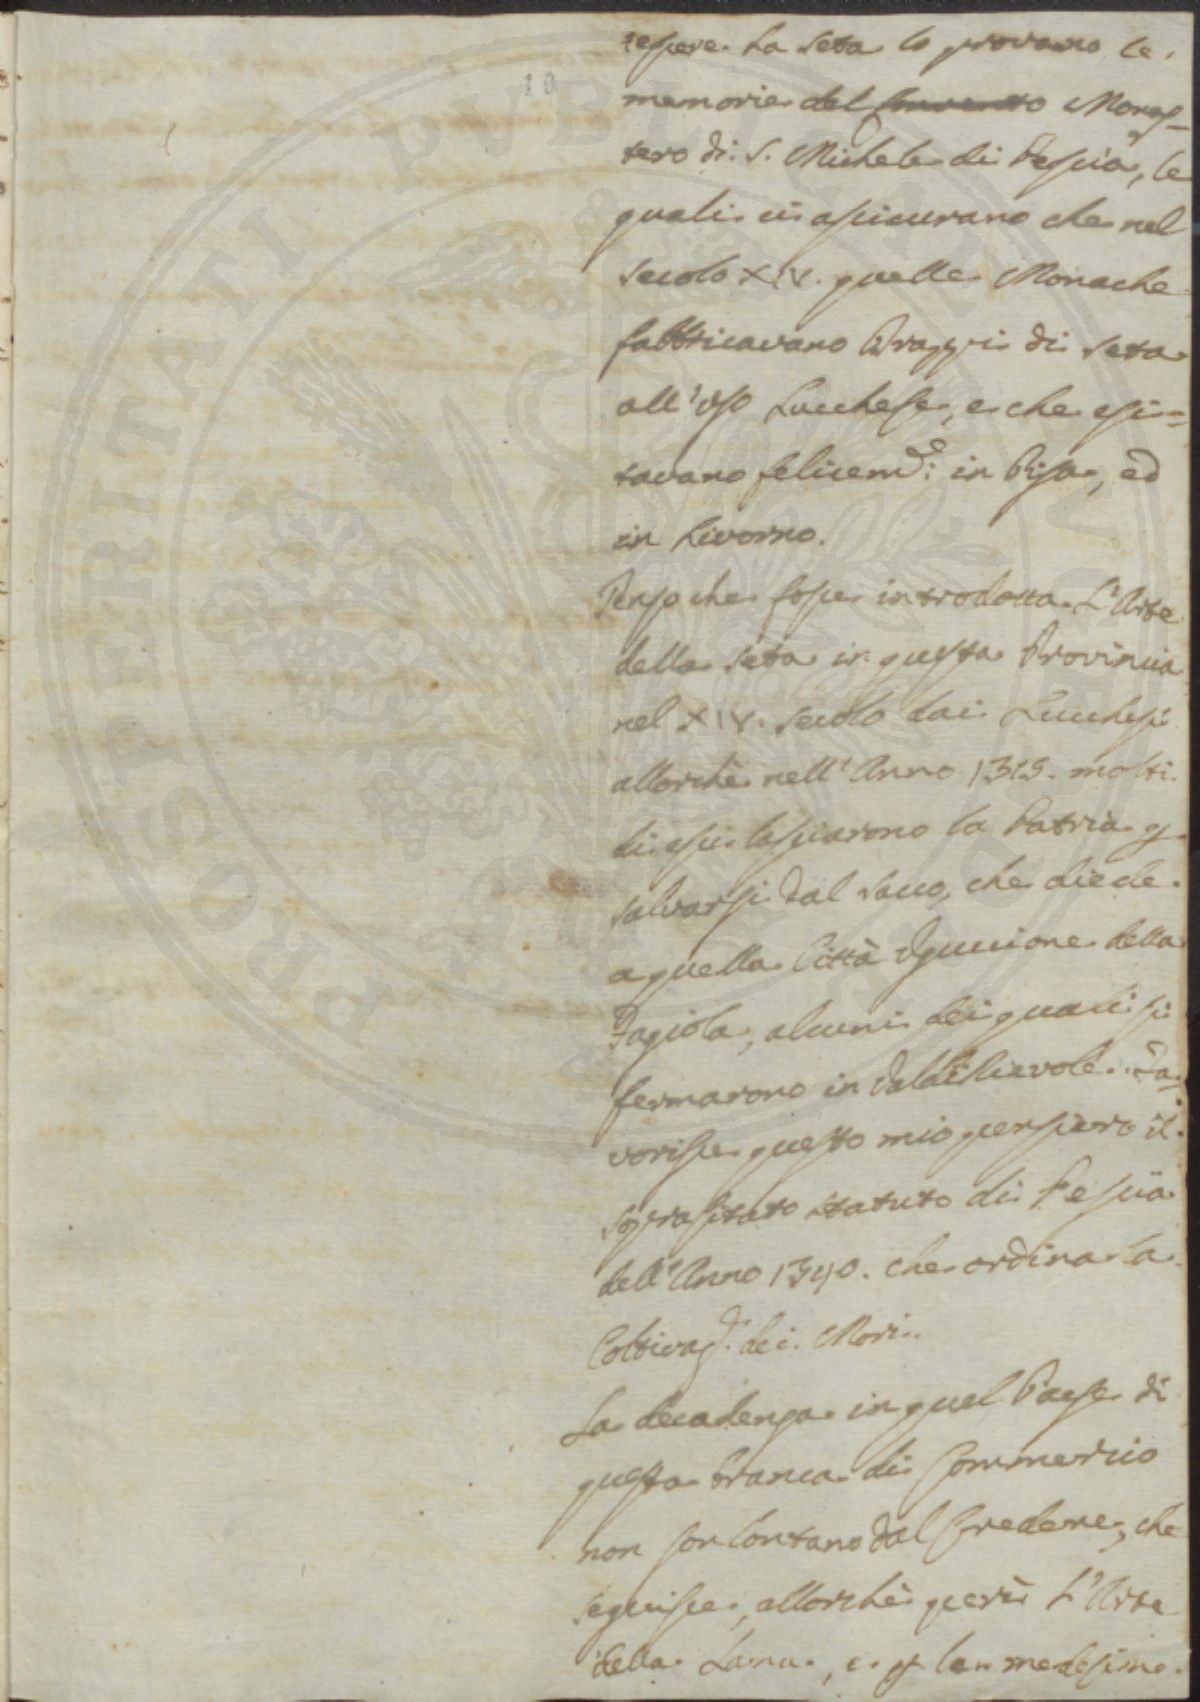 10
tessere la seta lo provano le
memorie del Convento Monas-
tero di S. Michele di Pescia, le
quali ci assicurano che nel
secolo XIV. quelle Monache
fabbricavano Drappi di seta
all'uso Lucchese, e che esi=
tavano felicem:e in Pisa, ed
in Livorno.
Penso che fosse introdotta l'Arte
della seta in questa Provincia
nel XIV. secolo dai Lucchesi
allorchè nell'Anno 1315. molti
di essi lasciarono la Patria p
salvarsi dal sacco, che diede
a quella Città Uguccione della
Fagiola, alcuni dei quali si
fermarono in Valdinievole. Fa-
vorisce questo mio pensiero il
sopracitato statuto di Pescia
dell'Anno 1340. che ordina la
Coltivaz.e dei Mori.
La decadenza in quel Paese di
questa branca di Commercio
non son lontano dal credere, che
seguisse, allorchè perì l'Arte
della Lana, e p la medesima
PROSPERITATI PVBLICAE AVGENDAE